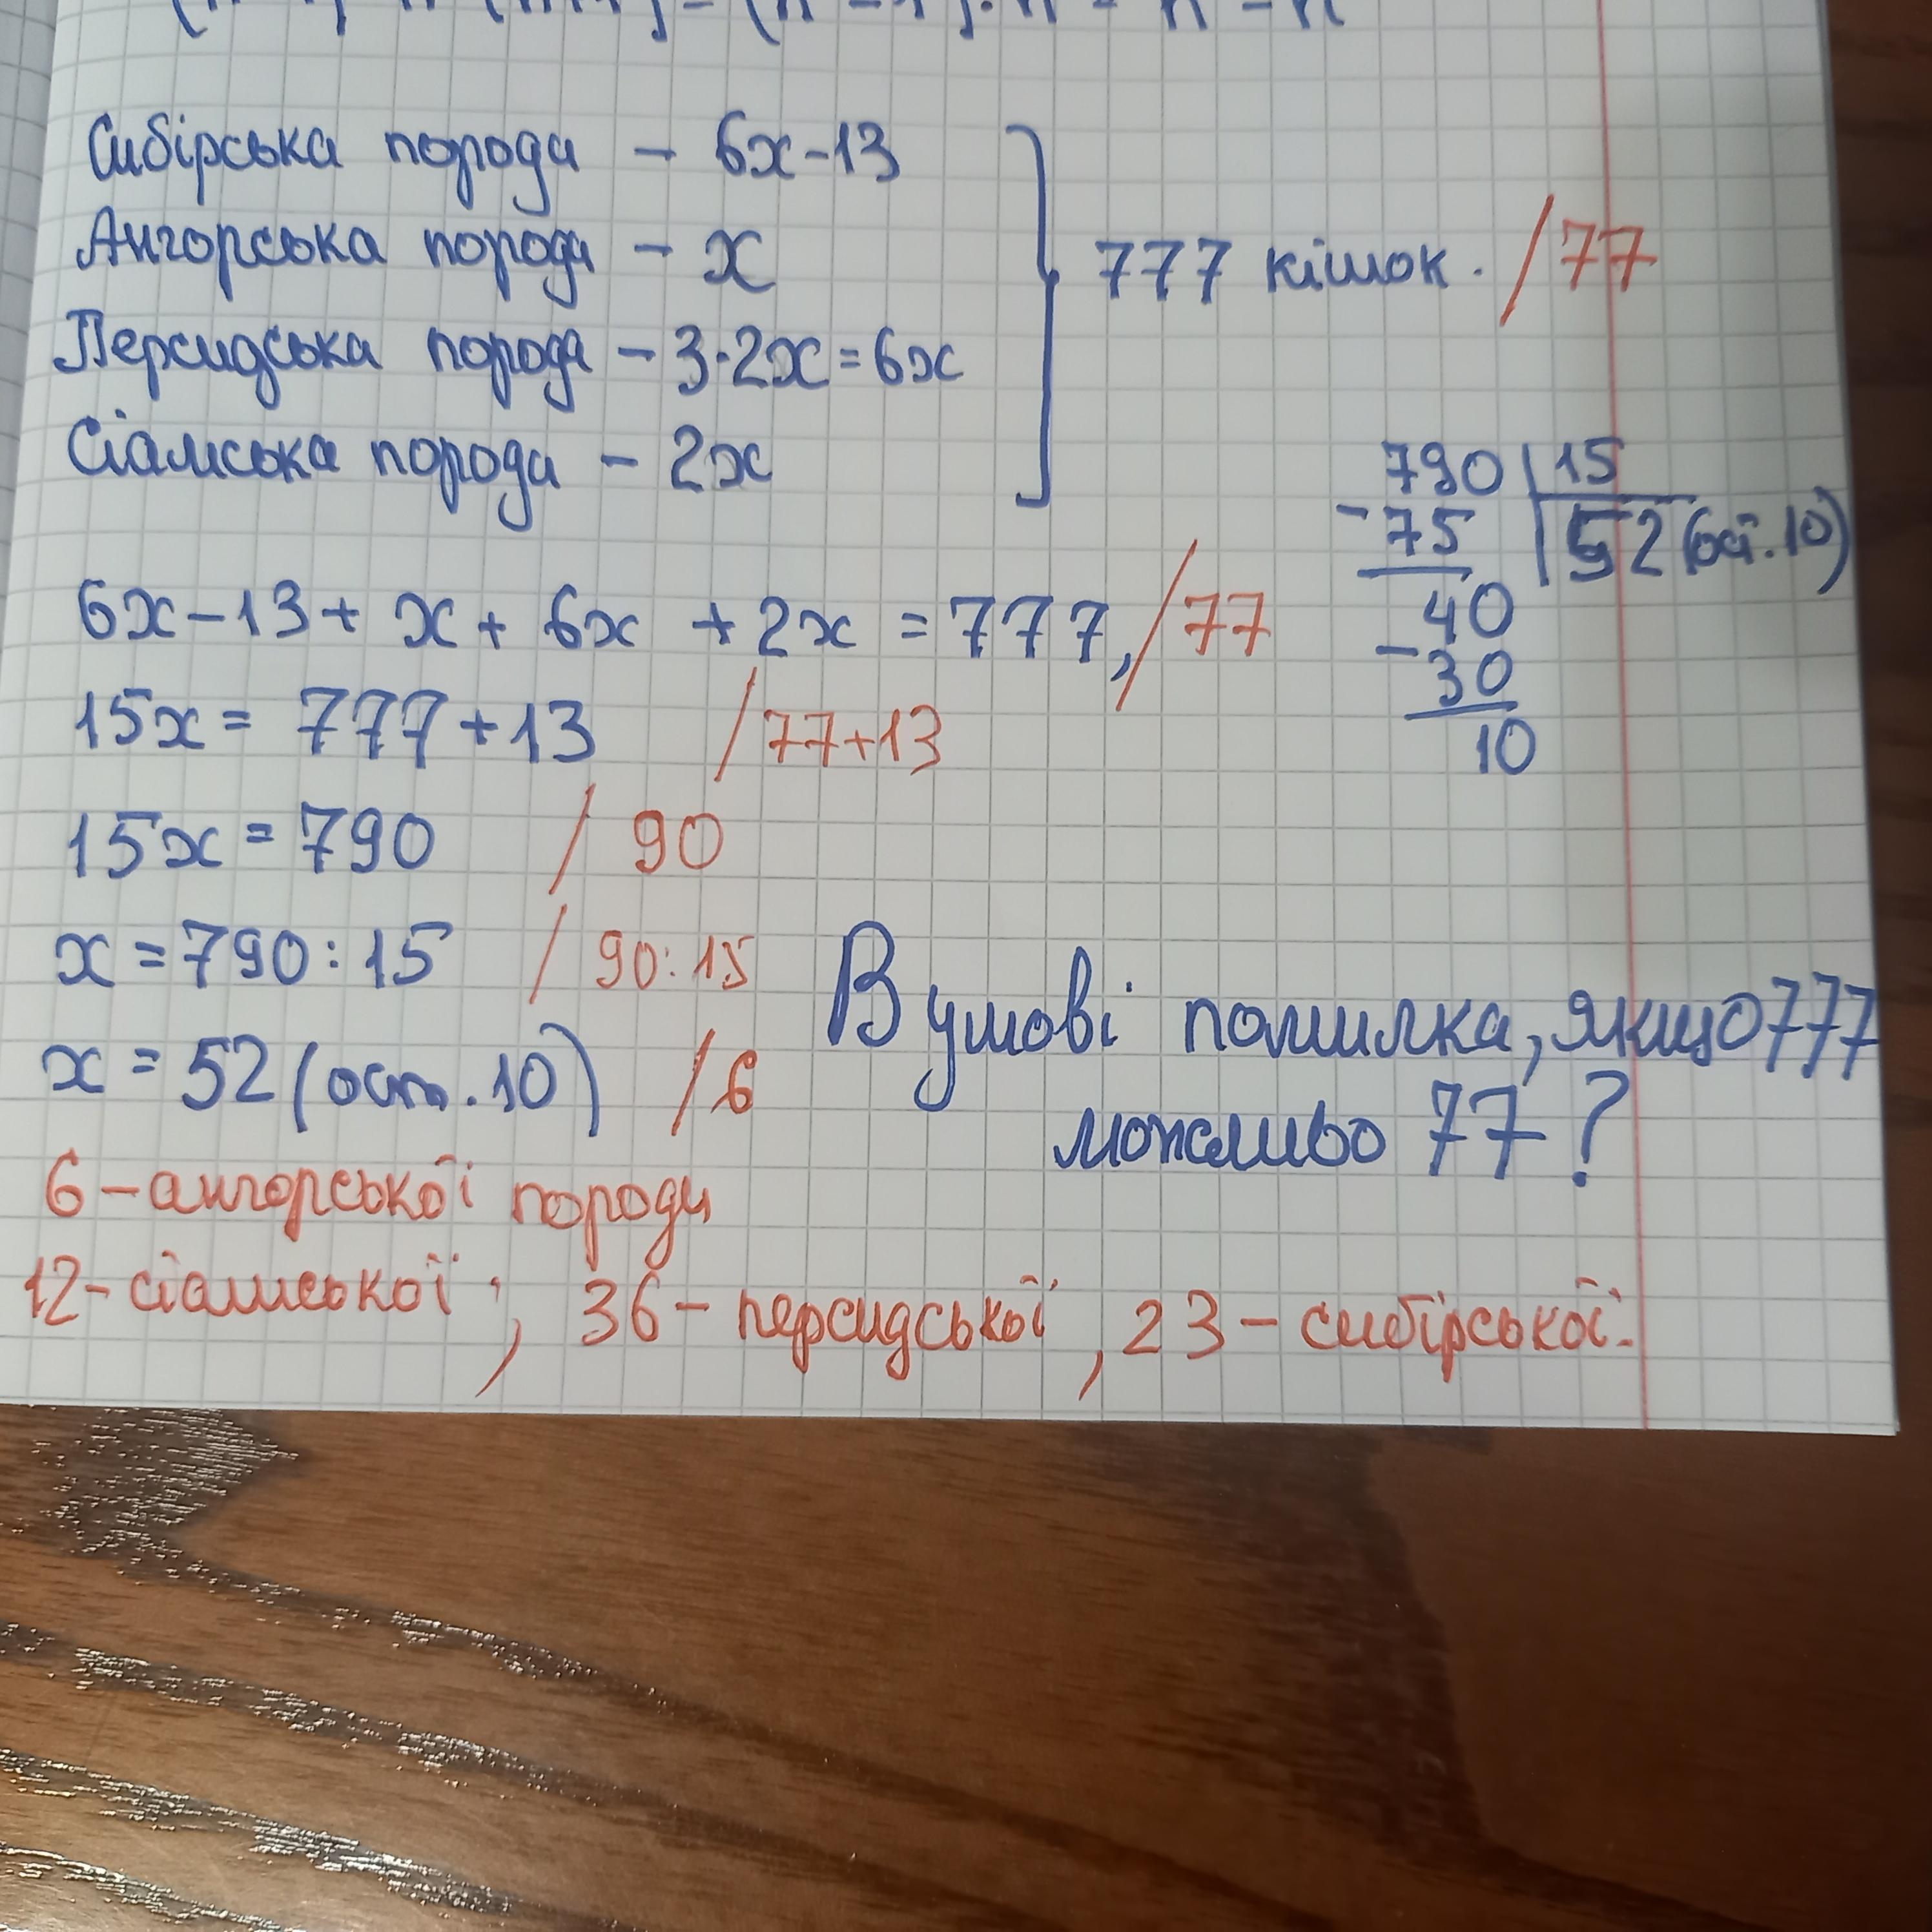 Сибірська порода - 6x-13
Ангорська порода - x
Персидська порода - 3·2x=6x
Сіамська порода - 2x
777 кішок. /77
790 | 15
-75 | 52 (ост.10)
40
-30
10
6x-13+x+6x+2x=777, /77
15x=777+13 /77+13
15x=790 / 90
x=790:15 / 90:15
x=52(ост.10) /6
В умові помилка, якщо 777
можливо 77?
6-ангорської породи
12-сіамської, 36-персидської, 23-сибірської.